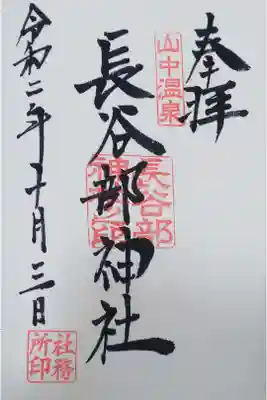 奉拝
山中温泉
長谷部神社
長谷部
神社印
令和二年十月三日
社務
所印